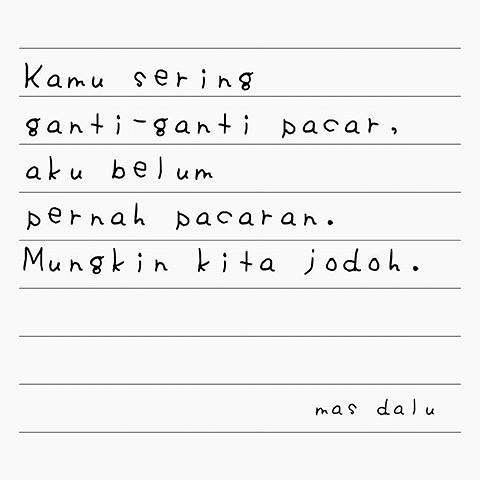 Kamu sering
ganti-ganti pacar,
aku belum
pernah pacaran.
Mungkin kita jodoh.
mas dalu